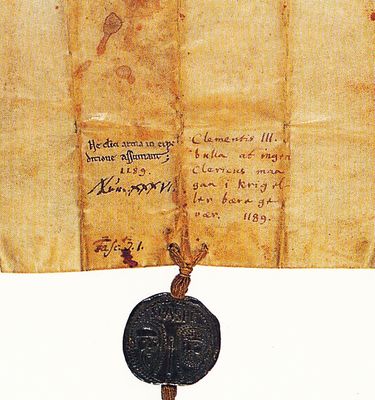 Ne clici arma in expe
ditione assumant;
1189.
Num. XXXVI.
Fasc. J. 1.
Clementis III.
bulla at ingen
Clericus maa
gaa i Krig el-
ler bære ge
vær. 1189.